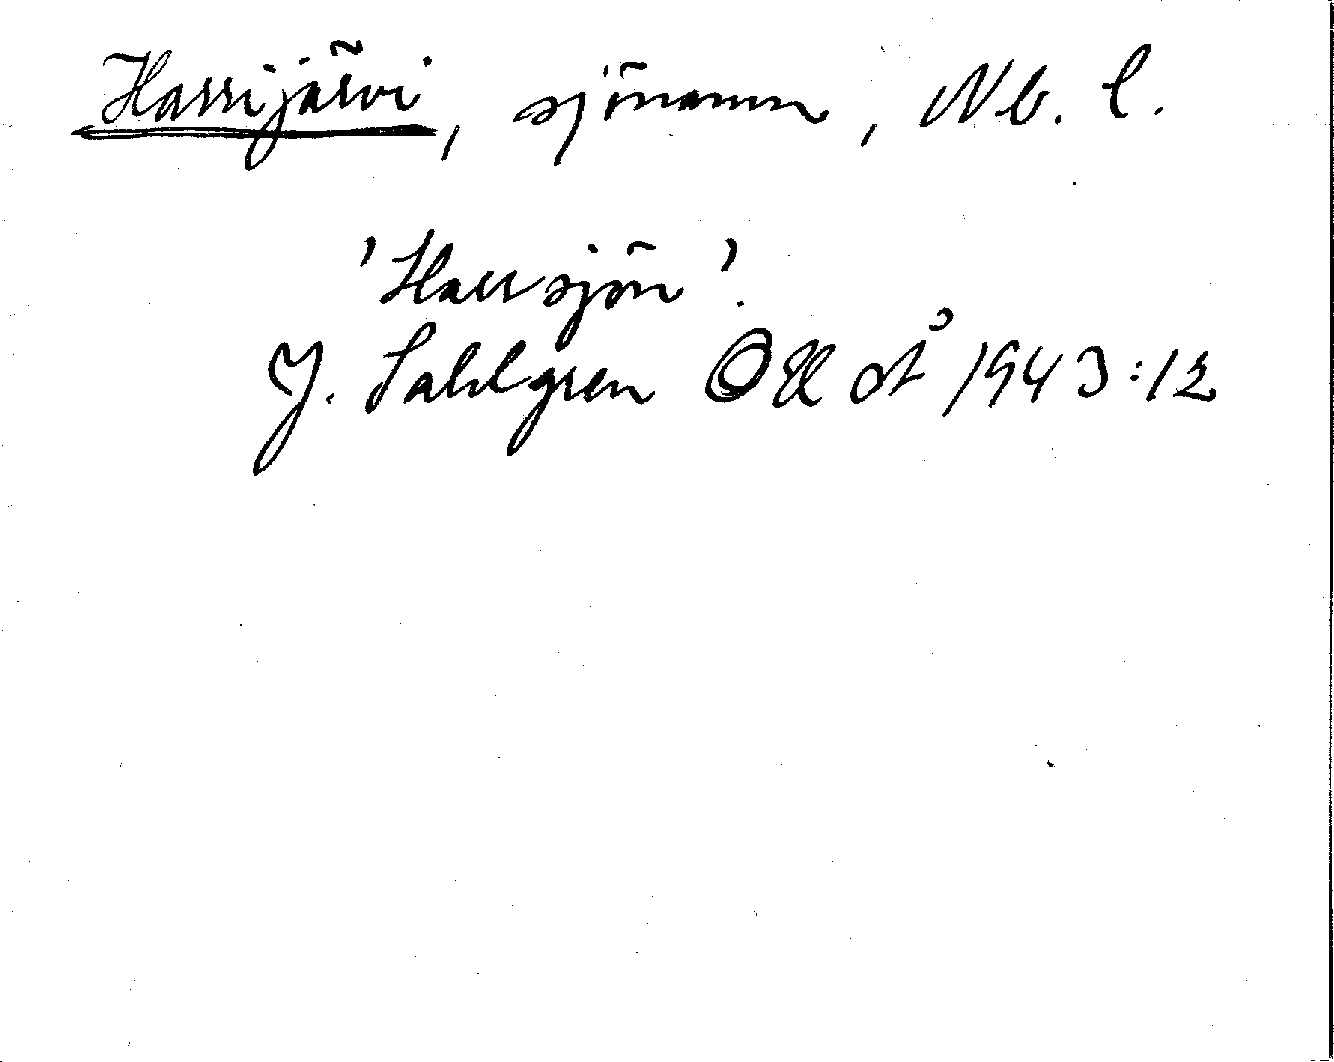 Harrijärvi, sjönamn, Nb. l.
'Harrsjön'.
J. Sahlgren OUÅ 1943:12